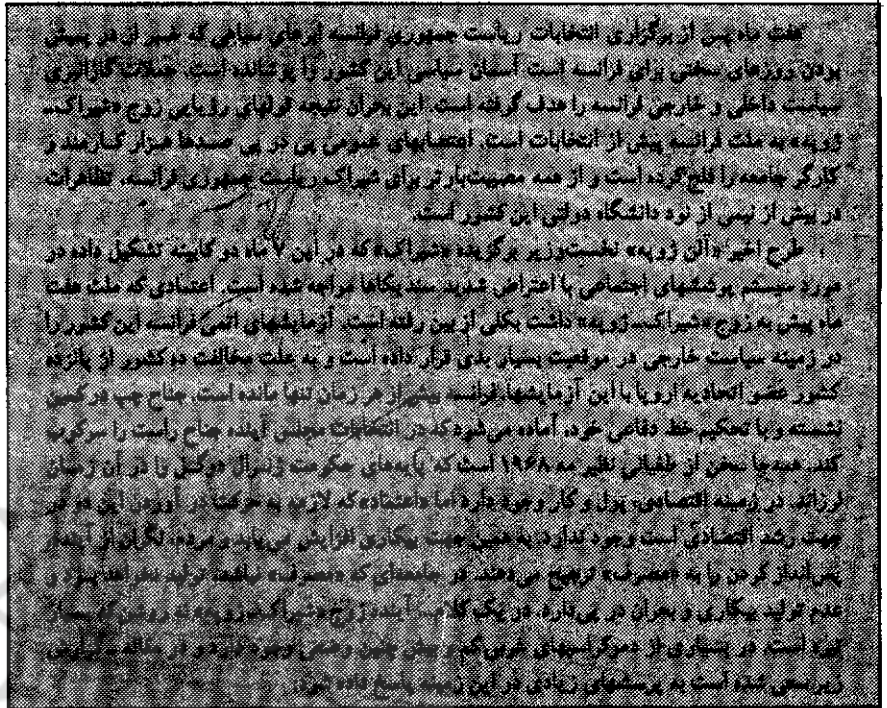 هفت ماه پس از برگزاری انتخابات ریاست جمهوری فرانسه ابرهای سیاهی که خبر از در پیش
بودن روزهای سختی برای فرانسه است آسمان سیاسی این کشور را پوشانده است. حملات گازانبری
سیاست داخلی و خارجی فرانسه را هدف گرفته است. این بحران نتیجه قولهای رؤیایی زوج «شیراک_
ژوپه» به ملت فرانسه پیش از انتخابات است. اعتصابهای عمومی پی در پی صدها هزار کارمند و
کارگر جامعه را فلج کرده است و از همه مصیبت‌بارتر برای شیراک ریاست جمهوری فرانسه، تظاهرات
در بیش از نیمی از نود دانشگاه دولتی این کشور است.
طرح اخیر «آلن ژوپه» نخست‌وزیر برگزیده «شیراک» که در این ۷ ماه دو کابینه تشکیل داده در
مورد سیستم پوششهای اجتماعی با اعتراض شدید سندیکاها مواجه شده است. اعتمادی که ملت هفت
ماه پیش به زوج «شیراک_ژوپه» داشت بکلی از بین رفته است. آزمایشهای اتمی فرانسه این کشور را
در زمینه سیاست خارجی در موقعیت بسیار بدی قرار داده است و به علت مخالفت ده کشور از پانزده
کشور عضو اتحادیه اروپا با این آزمایشها، فرانسه بیش از هر زمان تنها مانده است. جناح چپ در کمین
نشسته و با تحکیم خط دفاعی خود، آماده می‌شود که در انتخابات مجلس آینده جناح راست را سرکوب
کند. همه‌جا سخن از طغیانی نظیر مه ۱۹۶۸ است که پایه‌های حکومت ژنرال دوگل را در آن زمان
لرزاند. در زمینه اقتصادی، پول و کار وجود دارد اما «اعتماد» که لازمه به حرکت در آوردن این دو در
جهت رشد اقتصادی است وجود ندارد. به همین جهت بیکاری افزایش می‌یابد و مردم، نگران از آینده،
پس‌انداز کردن را به «مصرف» ترجیح می‌دهند. در جامعه‌ای که «مصرف» نباشد، تولید نخواهد بود و
عدم تولید بیکاری و بحران در پی دارد. در یک کلام، آینده زوج «شیراک_ژوپه» نه روشن که بسیار
تیره است. در بسیاری از دموکراسیهای غربی کم و بیش چنین وضعی وجود دارد و در مقاله
زیر سعی شده است به پرسشهای زیادی در این زمینه پاسخ داده شود.